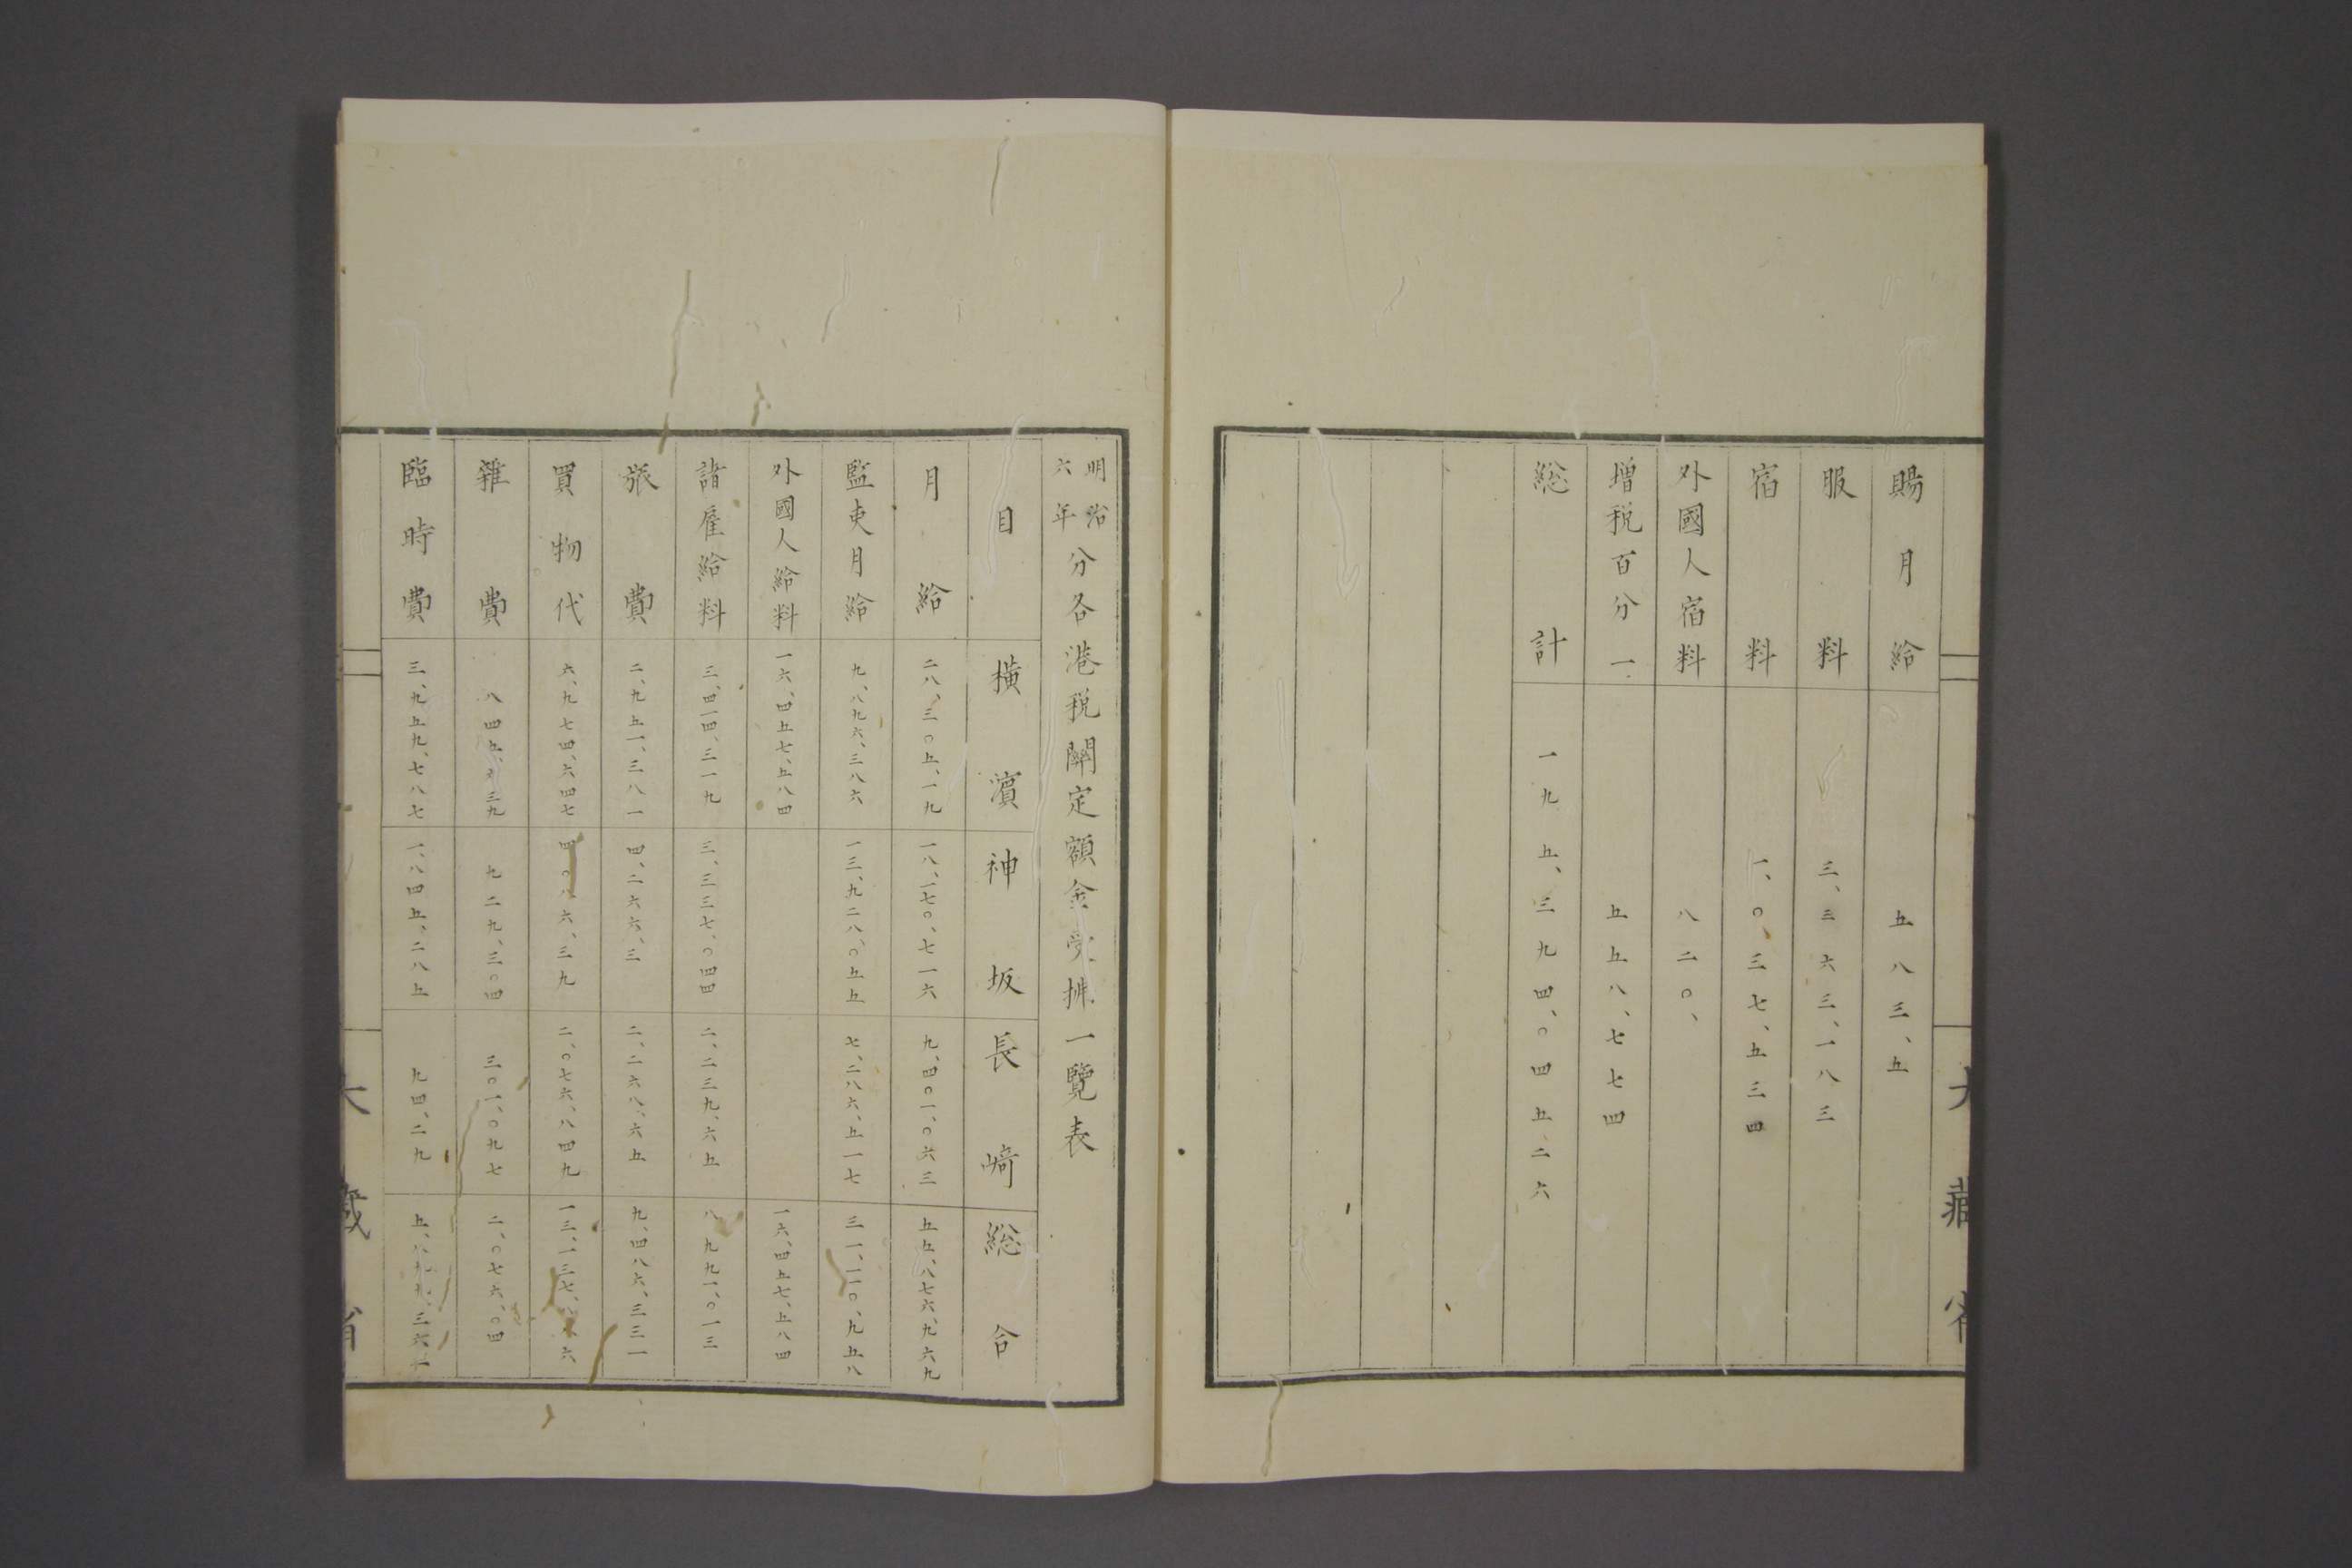 賜月給 五八三、五
服料 三、三六三、一八三
宿料 一、〇三七、五三四
外國人宿料 八二〇、
増税百分一 五五八、七七四
総計 一九五、三九四、〇四五二六
大藏省
明治六年分各港税關定額金受拂一覽表
目 横濱 神坂 長崎 総合
月給 二八、三〇五、一九 一八、一七〇、七一六 九、四〇一、〇六三 五五、八七六、九六九
監吏月給 九、八九六、三八六 一三、九二八、〇五五 七、二八六、五一七 三一、一一〇、九五八
外國人給料 一六、四五七、五八四 一六、四五七、五八四
諸雇給料 三、四一四、三一九 三、三三七、〇四四 二、二三九、六五 八、九九一、〇一三
旅費 二、九五一、三八一 四、二六六、三 二、二六八、六五 九、四八六、三三一
買物代 六、九七四、六四七 四、〇八六、三九 二、〇七六、八四九 一三、一三七、六
雜費 八四五、三九 九二九、三〇四 三〇一、〇九七 二、〇七六、〇四
臨時費 三、九五九、七八七 一、八四五、二八五 九四、二九 五、八九九、三六
大藏省